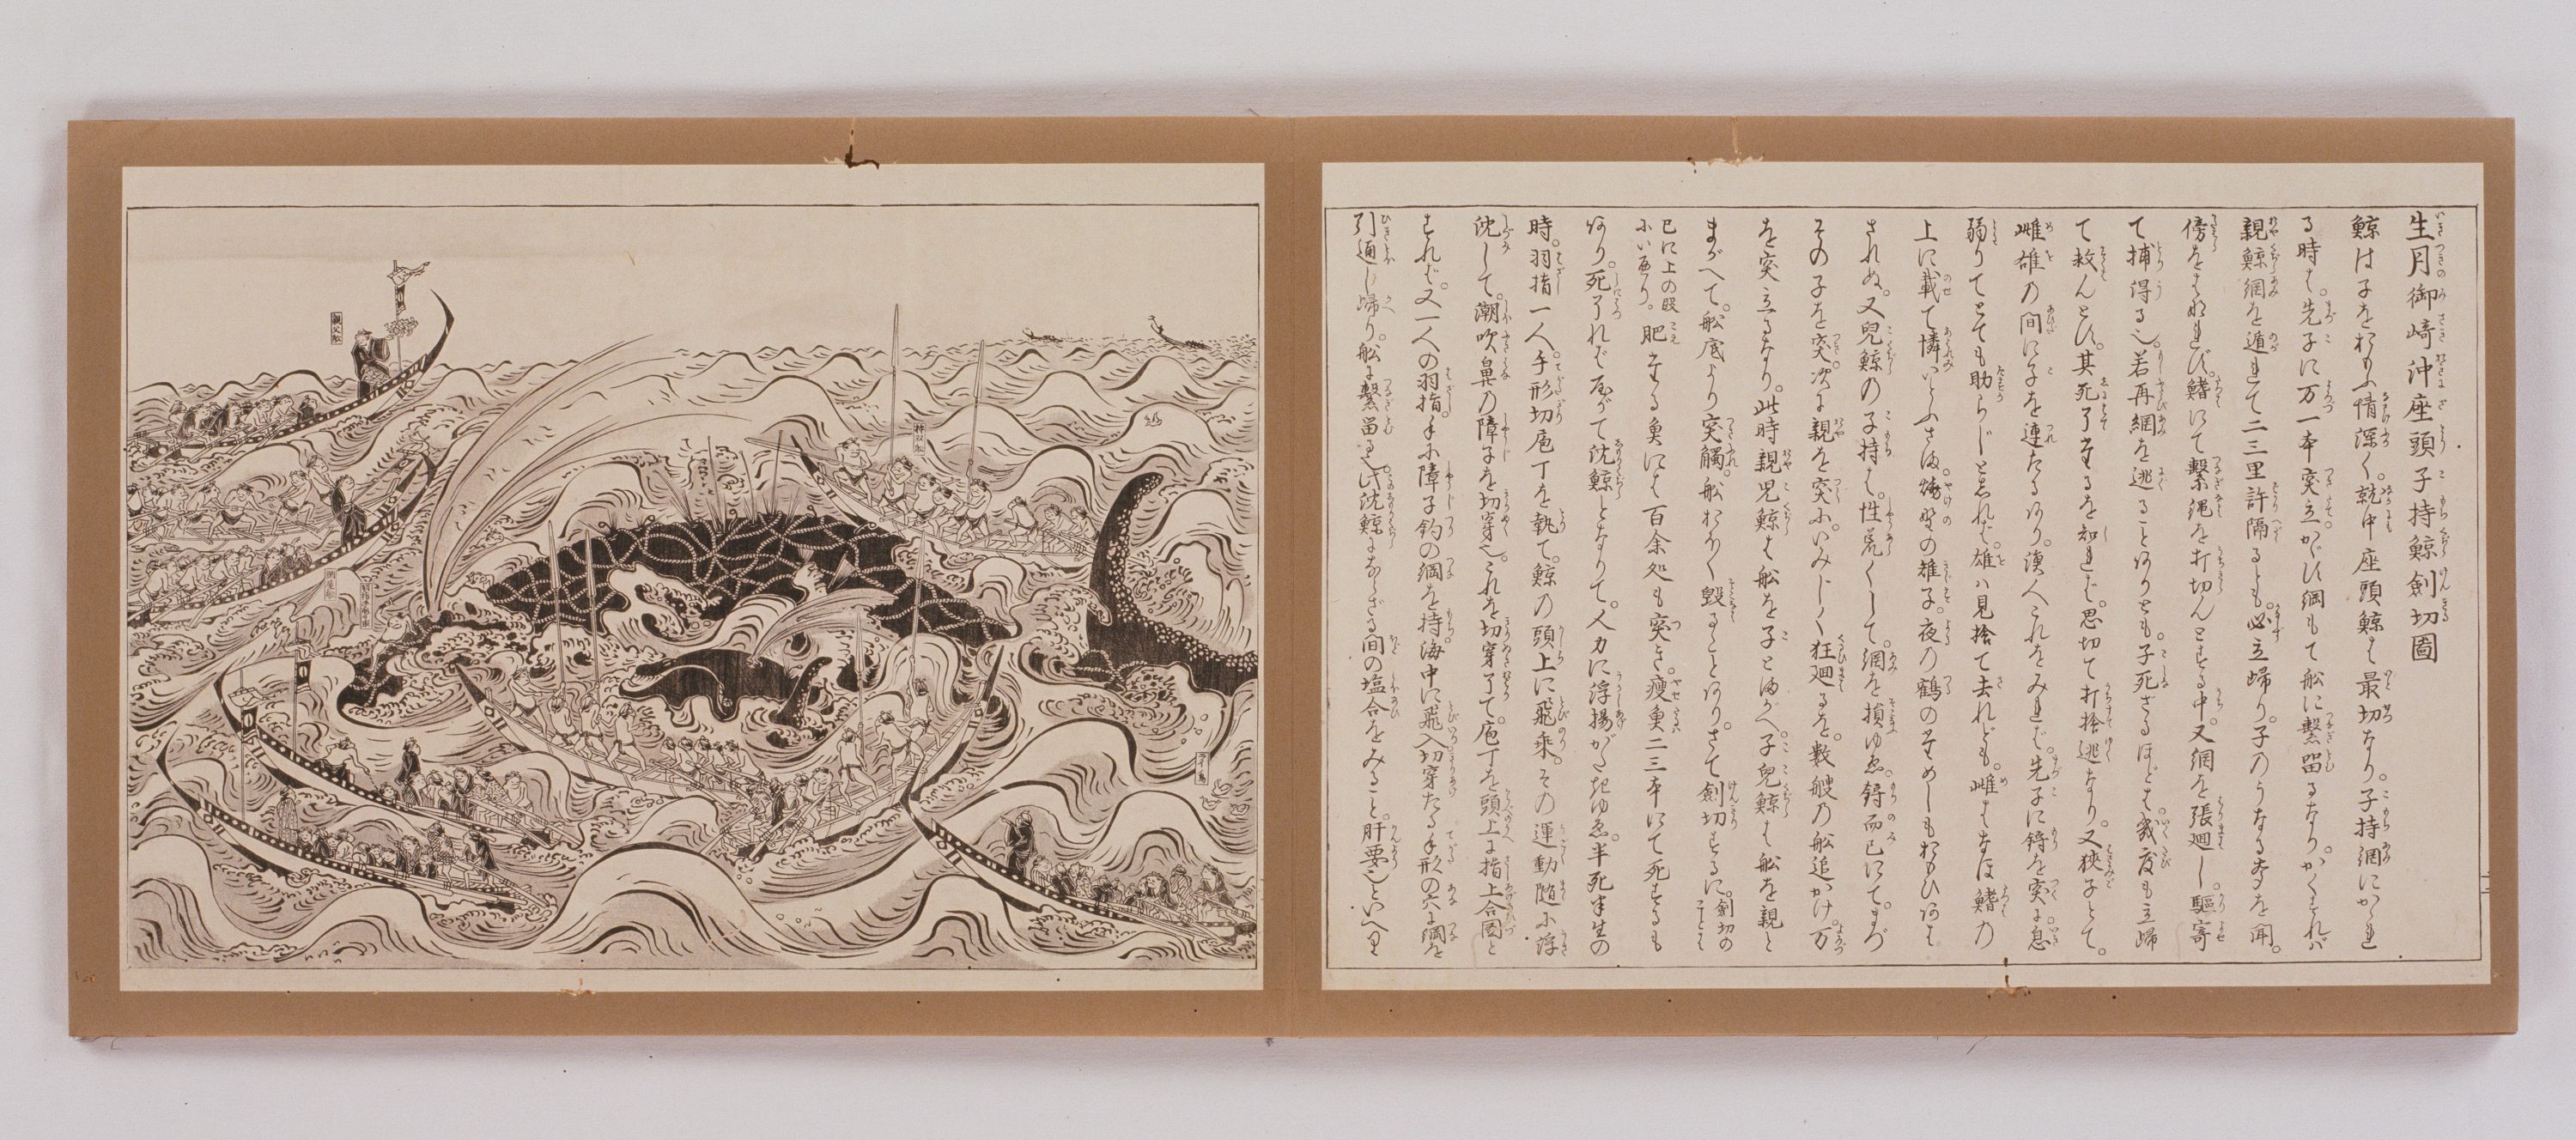 生月御崎沖座頭子持鯨劍切圖
鯨は子をおもふ情深く。就中座頭鯨は最切なり。子持網にかゝれ
る時は。先子に万一本突立。かひ綱もて舩に繫留るなり。かくすれバ
親鯨網を遁れて二三里許隔るとも。必立帰り。子のうなる聲を聞。
傍をはなれず。鰭にて繫縄を打切んとする中。又網を張廻し。驅寄
て捕得る也。若再網を逃ることありとも。子死ざるほどは。幾度も立帰
て救んとす。其死了たるを知れば。思切て打捨逃なり。又狹子とて。
雌雄の間に子を連たるあり。漁人これをみれば。先子に鎊を突は息
弱りてとても助らじとあれば。雄ハ見捨て去れども。雌はなほ鰭の
上に載て憐いとふさま。燒野の雉子。夜の鶴のためしもおもひあは
されぬ。又兒鯨の子持は。性荒くして。網を損ゆゑ。鎊而已にて。まづ
その子を突。次に親を突に。いみじく狂廻るを。數艘の舩追かけ。万
を突立るなり。此時親児鯨は舩を子とまがへ。子兒鯨は舩を親と
まがへて。舩底より突觸。舩おほく毀ることあり。さて劍切するに。劍切の
ことは
已に上の段
にいへり。肥たる魚にて百余処も突き。瘦魚二三本にて死するも
あり。死了れば底がて沈鯨となりて。人力に浮揚がたきゆゑ。半死半生の
時。羽指一人。手形切庖丁を執て。鯨の頭上に飛乘。その運動隨に浮
沈して。潮吹鼻の障子を切穿也。これを切穿了て。庖丁を頭上に指上合圖と
すれば。又一人の羽指。手に障子釣の綱を持海中に飛入切穿たる手形の穴に綱を
引通し帰り。舩に繫留る也。此沈鯨にならざる間の塩合をみること。肝要也といへり
親父舩
持双舩
子鯨